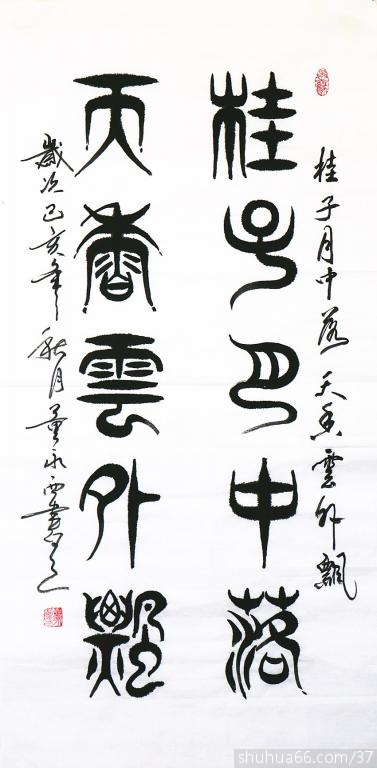 桂子月中落天香雲外飄
桂子月中落
天香雲外飄
歲次己亥年秋月董永西書
shuhua66.com/37